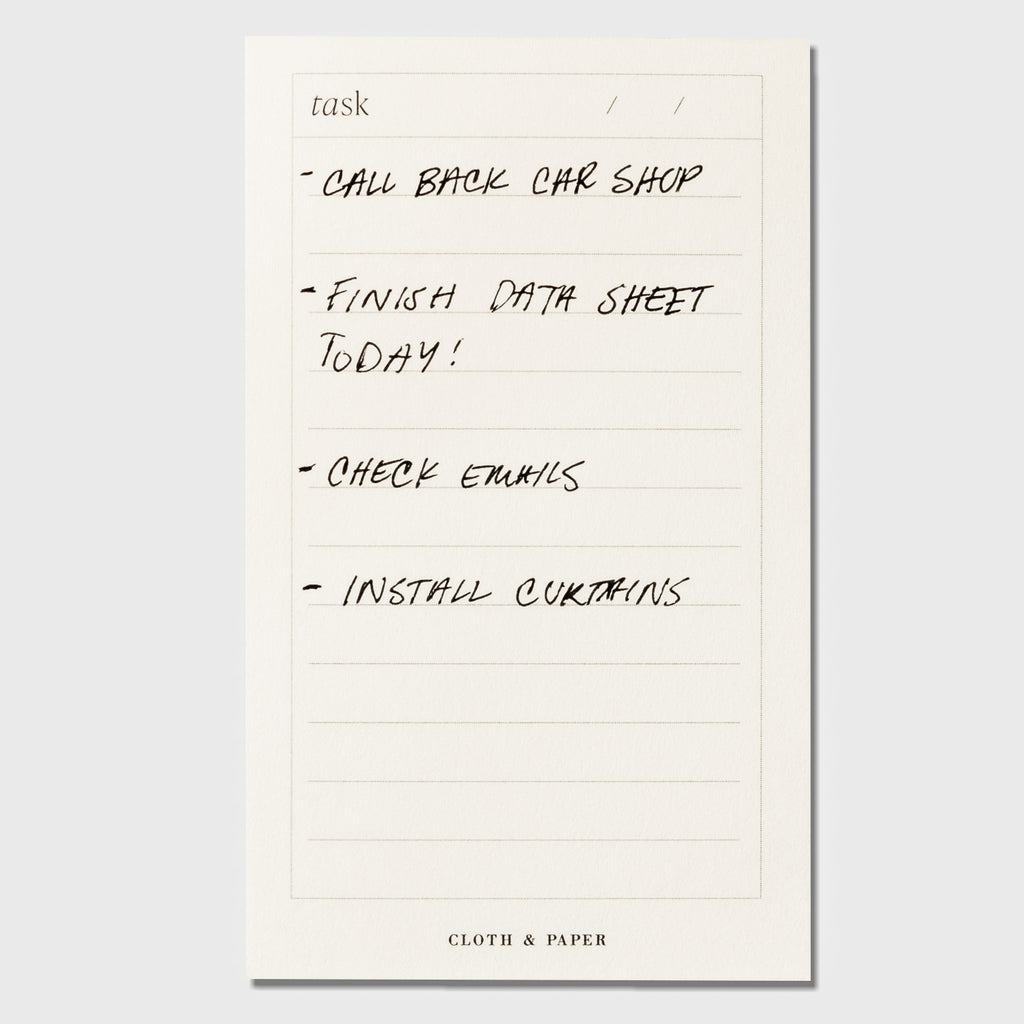 task / /
- CALL BACK CAR SHOP
- FINISH DATA SHEET
TODAY!
- CHECK EMAILS
- INSTALL CURTAINS
CLOTH & PAPER